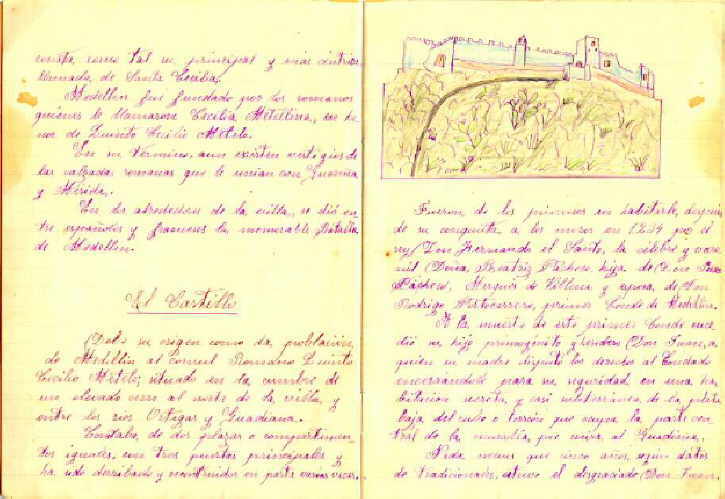 como tal su principal y más
llamada de Santa Cecilia.
Medellín fué fundado por los romanos
quienes le llamaron Cecilia Metellina, en ho
nor de Quinto Cecilio Metelo.
En su término, aun existen vestigios de
las calzadas romanas que le unían con
y Mérida.
En los alrededores de la villa, se dió en
tre españoles y franceses la memorable Batalla
de Medellín.
El Castillo
Debe su origen como la población,
de Medellín al Consul Romano Quinto
Cecilio Metelo; situado en la cumbre de
un elevado cerro al norte de la villa, y
entre los ríos Ortigas y Guadiana.
Constaba, de dos plazas o compartimien
tos iguales, con tres puertas principales y
ha sido derribado y construidos en parte varias veces.
Fueron de los primeros en habitarle, después
de su conquista a los moros en 1234 por el
rey Don Fernando el Santo, la célebre y
Doña Beatriz Pacheco, hija de Don Juan
Pacheco, Marqués de Villena y esposa, de Don
Rodrigo Portocarrero, primer Conde de Medellín.
A la muerte de este primer Conde suce
dió su hijo primogénito y heredero Don Juan, a
quien su madre disputó los derechos al Condado
encerrándole para su seguridad en una ha
bitación secreta y casi subterránea, de la parte
baja del cubo o torreón que ocupa la parte cen
tral de la muralla, que mira al Guadiana.
Nada menos que cinco años, según datos
de tradicionales, estuvo el desgraciado Don Juan